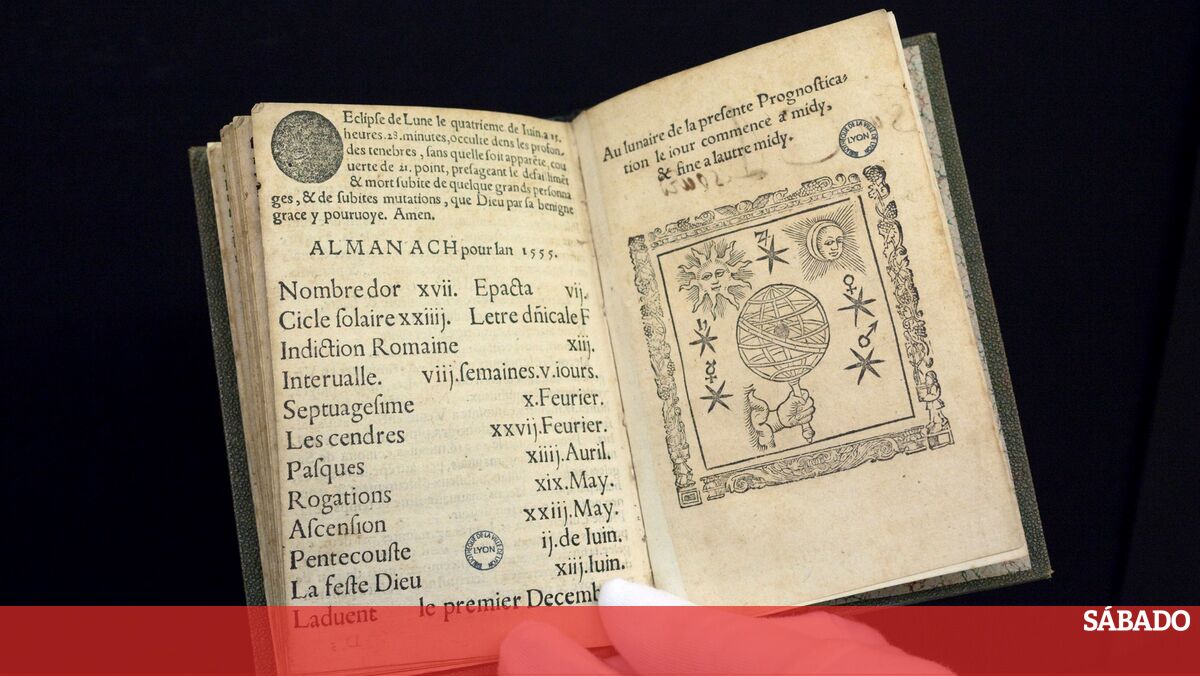 Eclipse de Lune le quatrieme de Iuin.a 15.
heures.23.minutes, occulte dens les profon
des tenebres, sans quelle soit apparēte, cou
uerte de 21. point, presageant le
& mort subite de quelque grands personna
ges, & de subites mutations, que Dieu par sa benigne
grace y pouruoye. Amen.
ALMANACH pour lan 1555.
Nombre dor xvii. Epacta vij.
Cicle solaire xxiij. Letre dn̄icale F
Indiction Romaine xiij.
Interualle. viij.semaines.v.iours.
Septuagesime x.Feurier.
Les cendres xxvij.Feurier.
Pasques xiiij.Auril.
Rogations xix.May.
Ascension xxiij.May.
Pentecouste ij.de Iuin.
La feste Dieu xiij.Iuin.
Laduent le premier Decemb
BIBLIOTHEQUE DE LA VILLE DE LYON
LYON
Au lunaire de la presente Prognostica-
tion le iour commence a midy,
& fine a lautre midy.
BIBLIOTHEQUE DE LA VILLE DE LYON
LYON
SÁBADO